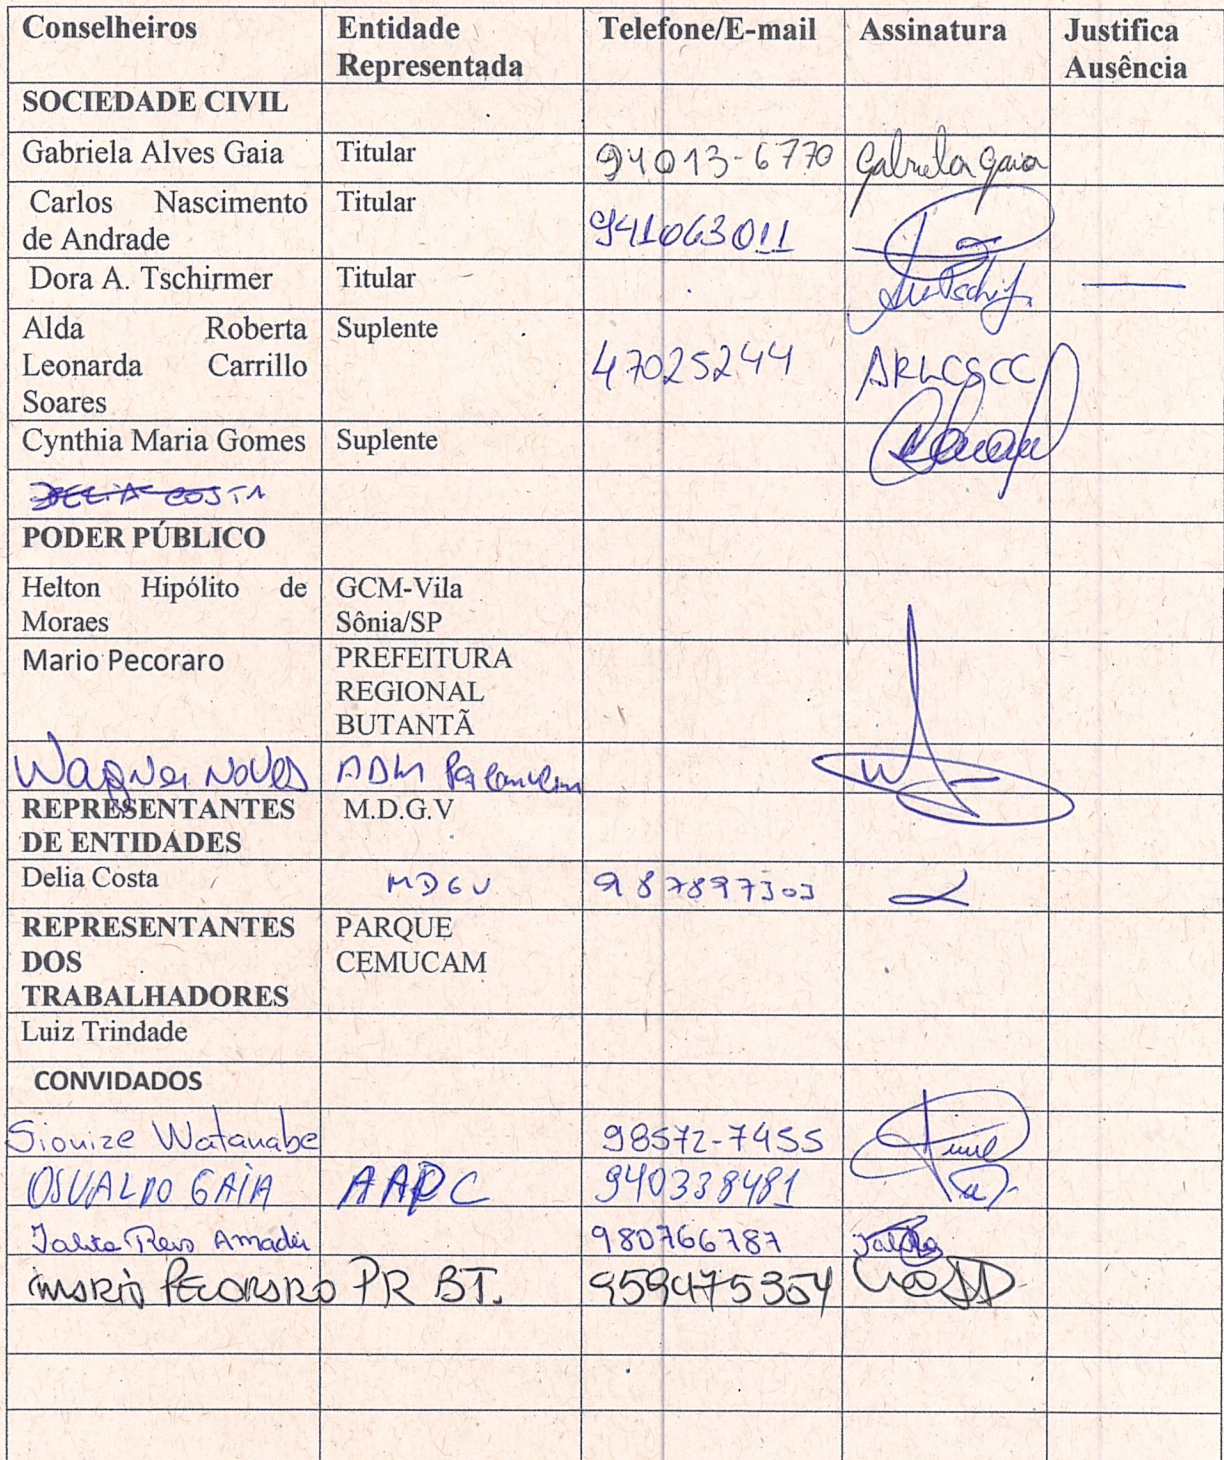 Conselheiros Entidade Representada Telefone/E-mail Assinatura Justifica Ausência
SOCIEDADE CIVIL
Gabriela Alves Gaia Titular 94013-6770 Gabriela Gaia
Carlos Nascimento de Andrade Titular 941063011
Dora A. Tschirmer Titular
Alda Roberta Leonarda Carrillo Soares Suplente 47025244 ARLCSCC
Cynthia Maria Gomes Suplente
DELIA COSTA
PODER PÚBLICO
Helton Hipólito de Moraes GCM-Vila Sônia/SP
Mario Pecoraro PREFEITURA REGIONAL BUTANTÃ
Wagner Noves ADM
REPRESENTANTES DE ENTIDADES M.D.G.V
Delia Costa MDGV 987897303
REPRESENTANTES DOS TRABALHADORES PARQUE CEMUCAM
Luiz Trindade
CONVIDADOS
Sionize Watanabe 98572-7455
OSVALDO GAIA AAPC 940338481
Reis Amadei 980766787
MARIO PECORARO PR BT. 959475354